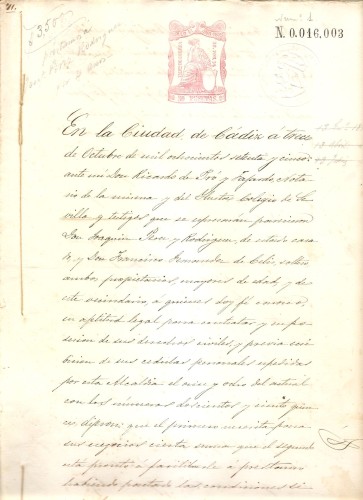 71.
Num. 1
N. 0.016,003
En la Ciudad de Cádiz á trece
de Octubre de mil ochocientos setenta y cinco:
ante mi Don Ricardo de Pró y Fajardo, Nota-
rio de la misma y del Ilustre Colegio de Se-
villa y testigos que se espresarán parecieron
Don Joaquin Perez y Rodriguez, de estado casa-
do, y Don Francisco Fernandez de Celis, soltero
ambos, propietarios, mayores de edad, y de
este vecindario, á quienes doy fé conozco,
en aptitud legal para contratar y en po-
sesion de sus derechos civiles, y previa exhi-
bicion de sus cedulas personales espedidas
por esta Alcaldia el once y ocho del actual
con los números doscientos y ciento quin-
ce, dijeron: que el primero necesita para
sus negocios cierta suma que el segundo
está pronto á facilitarle á préstamo
habiendo pactado las condiciones